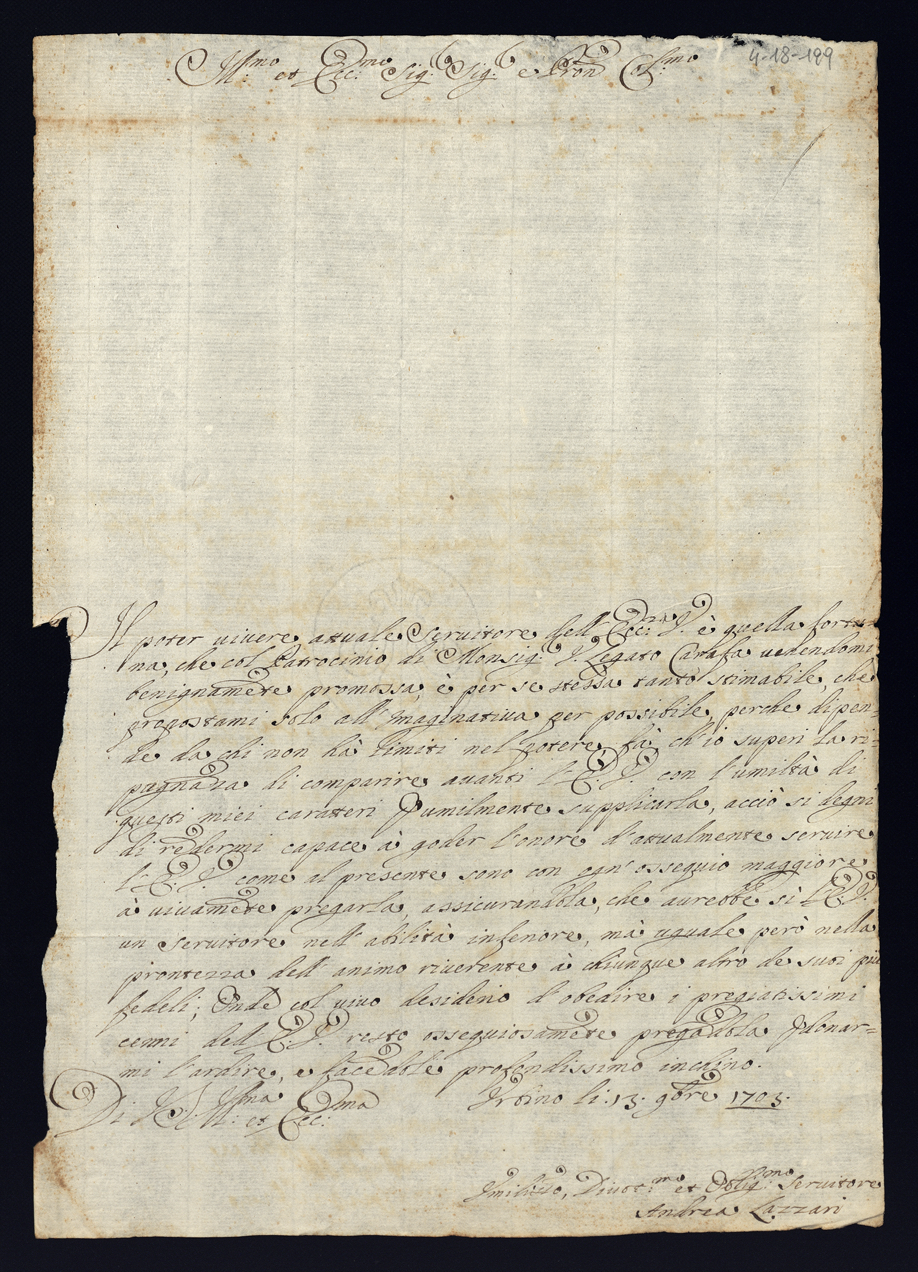 4-18-199
Ill.mo et Ecc.mo Sig.r Sig.r e Pron Col.mo
Il poter vivere attuale Servitore dell' Ecc.za V. è quella fortu-
na, che col Patrocinio di Monsig.r V. Legato Carafa vedendomi
benignamẽte promossa, è per se stessa tanto stimabile, che
propostami solo all' imaginativa per possibile, perche dipen-
de da chi non hà limiti nel potere, fà, ch'io superi la ri-
pugnãza di comparire avanti l'E. V. con l'umiltà di
questi miei caratteri p umilmente supplicarla, acciò si degni
di rẽdermi capace à goder l'onore d'attualmente servire
l'E. V. come al presente sono con ogn' ossequio maggiore
à vivamẽte pregarla, assicurandola, che avrebbe si l'E. V.
un servitore nell' abilità inferiore, mà uguale però nella
prontezza dell' animo riverente à chiunque altro de suoi più
fedeli; Onde col vivo desiderio d'obedire i pregiatissimi
cenni dell' E. V. resto ossequiosamẽte pregãdola pdonar-
mi l'ardire, e facẽdole profondissimo inchino.
Di V. Ill.ma et Ecc.ma Urbino li 13. 9bre 1703.
Umiliss.o, Divot.mo et Oblig.mo Servitore
Andrea Lazzari